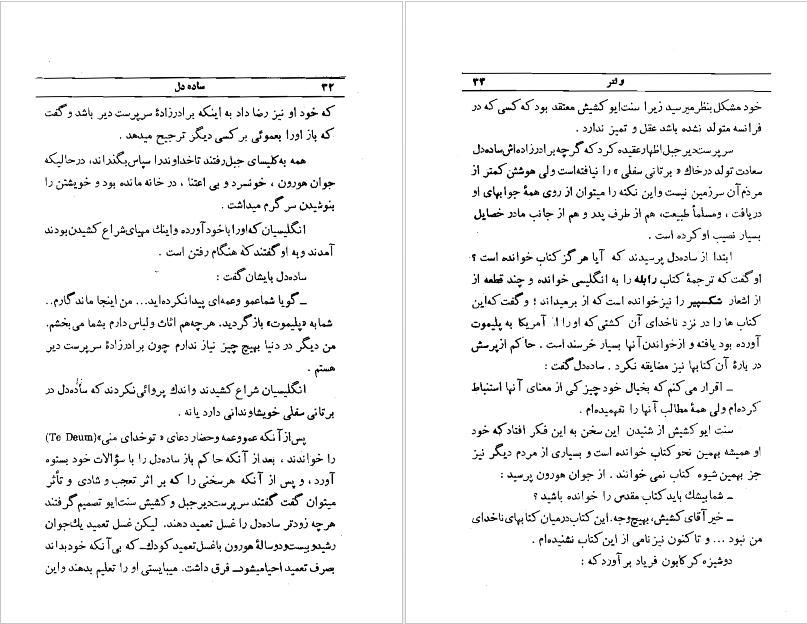 ۳۲ ساده دل
که خود او نیز رضا داد به اینکه برادرزادهٔ سرپرست دیر باشد و گفت
که باز اورا بعموئی برکسی دیگر ترجیح میدهد .
همه به‌کلیسای جبل رفتند تاخداوندرا سپاس‌بگذراند، درحالیکه
جوان هورون ، خونسرد و بی اعتنا ، در خانه مانده بود و خویشتن را
بنوشیدن سرگرم میداشت .
انگلیسیان که‌اورا باخود آورده واینك مهیای شراع کشیدن بودند
آمدند وبه اوگفتندکه هنگام رفتن است .
ساده‌دل بایشان گفت :
ــ گویا شماعمو وعمه‌ای پیدا نکرده‌اید... من اینجا ماندگارم..
شما به «پلیموت» بازگردید. هرچه‌هم اثاث ولباس دارم بشما می‌بخشم.
من دیگر در دنیا بهیچ چیز نیاز ندارم چون برادرزادهٔ سرپرست دیر
هستم .
انگلیسیان شراع کشیدند واندك پروائی نکردند که ساده‌دل در
برتانی سفلی خویشاوندانی دارد یانه .
پس‌از آنکه عمووعمه وحضار دعای « توخدای منی»(Te Deum)
را خواندند ، بعد از آنکه حاکم باز ساده‌دل را با سؤالات خود بستوه
آورد ، و پس از آنکه هرسخنی را که بر اثر تعجب و شادی و تأثر
میتوان گفت گفتند سرپرست‌دیرجبل وکشیش سنت‌ایو تصمیم گرفتند
هرچه زودتر ساده‌دل را غسل تعمید دهند. لیکن غسل تعمید یك‌جوان
رشیدوبیست‌ودوسالهٔ هورون باغسل‌تعمیدکودك‌ــ که بی‌آنکه خودبداند
بصرف تعمید احیامیشودــ فرق داشت. میبایستی او را تعلیم بدهند واین
ولتر ۳۳
خود مشکل بنظرمیرسید زیرا سنت‌ایوکشیش معتقد بود که کسی که در
فرانسه متولد نشده باشد عقل و تمیز ندارد .
سرپرست‌دیرجبل اظهارعقیده کردکه گرچه برادرزاده‌اش ساده‌دل
سعادت تولد درخاك « برتانی سفلی » را نیافته‌است ولی هوشش کمتر از
مردم آن سرزمین نیست واین نکته را میتوان از روی همهٔ جوابهای او
دریافت ، ومسلماً طبیعت، هم از طرف پدر و هم از جانب مادر خصایل
بسیار نصیب اوکرده است .
ابتدا از ساده‌دل پرسیدند که آیا هرگز کتاب خوانده است ؟
اوگفت که ترجمهٔ کتاب رابله را به انگلیسی خوانده و چند قطعه از
از اشعار شکسپیر را نیزخوانده است‌که از برمیداند ؛ وگفت که‌این
کتاب ها را در نزد ناخدای آن کشتی‌که اورا از آمریکا به پلیموت
آورده بود یافته و ازخواندن‌آنها بسیار خرسند است . حاکم ازپرسش
در بارهٔ آن کتابها نیز مضایقه نکرد . ساده‌دل گفت :
ــ اقرار می‌کنم که بخیال خودچیز کی از معنای آنها استنباط
کرده‌ام ولی همهٔ مطالب آنها را نفهمیده‌ام .
سنت ایو کشیش از شنیدن این سخن به این فکر افتادکه خود
او همیشه بهمین نحوکتاب خوانده است و بسیاری از مردم دیگر نیز
جز بهمین شیوه کتاب نمی خوانند . از جوان هورون پرسید :
ــ شمابیشك باید کتاب مقدس را خوانده باشید ؟
ــ خیرآقای کشیش، بهیچ‌وجه.این‌کتاب درمیان کتابهای‌ناخدای
من نبود ... و تاکنون نیز نامی از این‌کتاب نشنیده‌ام .
دوشیزه کرکابون فریاد برآورد که :